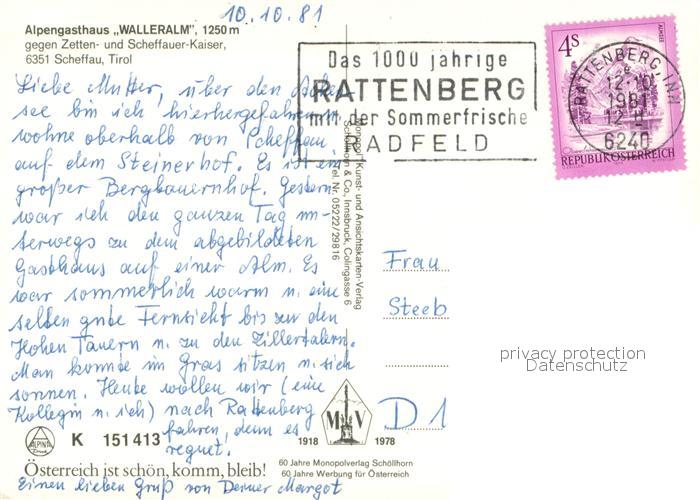 10.10.81
Alpengasthaus „WALLERALM", 1250 m
gegen Zetten- und Scheffauer-Kaiser,
6351 Scheffau, Tirol
Liebe Mutter, über den Achen-
see bin ich hierhergefahren u.
wohne oberhalb von Scheffau,
auf dem Steinerhof. Es ist ein
großer Bergbauernhof. Gestern
war ich den ganzen Tag un-
terwegs zu dem abgebildeten
Gasthaus auf einer Alm. Es
war sommerlich warm u. eine
selten gute Fernsicht bis zu den
Hohen Tauern u. zu den Zillertalern.
Man konnte im Gras sitzen u. sich
sonnen. Heute wollen wir (eine
Kollegin u. ich) nach Rattenberg
fahren, denn es
regnet.
Einen lieben Gruß von Deiner Margot
ALPINA
K 151 413
Österreich ist schön, komm, bleib!
1918 MV 1978
60 Jahre Monopolverlag Schöllhorn
60 Jahre Werbung für Österreich
„Monopol" Kunst- und Ansichtskarten-Verlag
Schöllhorn & Co., Innsbruck, Colingasse 6
Tel. Nr. 05222/29816
Das 1000 jährige
RATTENBERG
mit der Sommerfrische
RADFELD
4S
ALMSEE
REPUBLIK ÖSTERREICH
RATTENBERG/INN
12.10.
1981
12-
6240
Frau
Steeb
D 1
privacy protection
Datenschutz